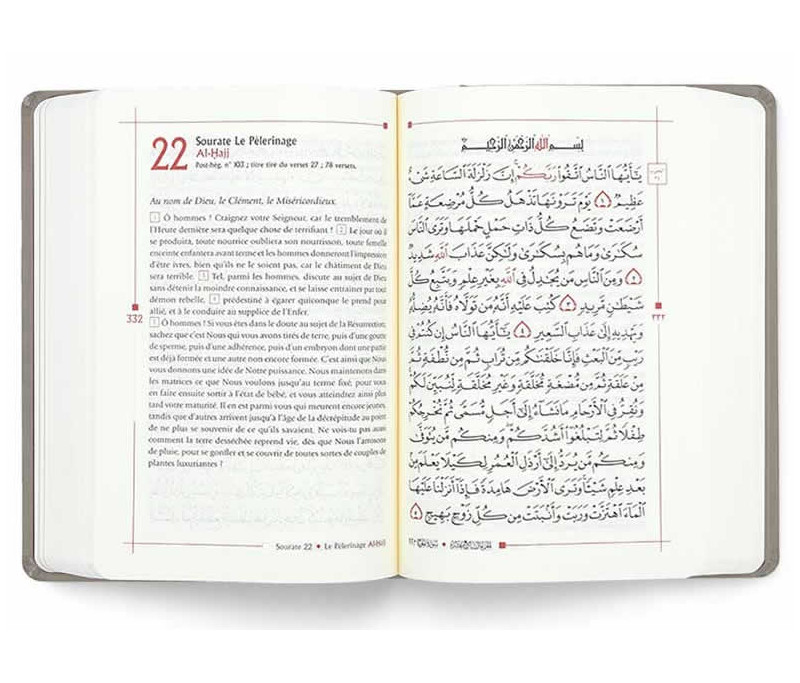 22
Sourate Le Pèlerinage
Al-Ḥajj
Post-hég. n° 103 ; titre tiré du verset 27 ; 78 versets.
Au nom de Dieu, le Clément, le Miséricordieux.
1 Ô hommes ! Craignez votre Seigneur, car le tremblement de
l'Heure dernière sera quelque chose de terrifiant ! 2 Le jour où il
se produira, toute nourrice oubliera son nourrisson, toute femelle
enceinte enfantera avant terme et les hommes donneront l'impression
d'être ivres, bien qu'ils ne le soient pas, car le châtiment de Dieu
sera terrible. 3 Tel, parmi les hommes, discute au sujet de Dieu
sans détenir la moindre connaissance, et se laisse entraîner par tout
démon rebelle, 4 prédestiné à égarer quiconque le prend pour
allié, et à le conduire au supplice de l'Enfer.
5 Ô hommes ! Si vous êtes dans le doute au sujet de la Résurrection,
sachez que c'est Nous qui vous avons tirés de terre, puis d'une goutte
de sperme, puis d'une adhérence, puis d'un embryon dont une partie
est déjà formée et une autre non encore formée. C'est ainsi que Nous
vous donnons une idée de Notre puissance. Nous maintenons dans
les matrices ce que Nous voulons jusqu'au terme fixé, pour vous
en faire ensuite sortir à l'état de bébé, et vous atteindrez ainsi plus
tard votre maturité. Il en est parmi vous qui meurent encore jeunes,
tandis que d'autres arrivent jusqu'à l'âge de la décrépitude au point
de ne plus se souvenir de ce qu'ils savaient. Ne vois-tu pas aussi
comment la terre desséchée reprend vie, dès que Nous l'arrosons
de pluie, pour se gonfler et se couvrir de toutes sortes de couples de
plantes luxuriantes ?
332
Sourate 22 • Le Pèlerinage Al-Ḥajj
بِسْمِ اللَّهِ الرَّحْمَٰنِ الرَّحِيمِ
يَٰٓأَيُّهَا ٱلنَّاسُ ٱتَّقُوا۟ رَبَّكُمْ ۚ إِنَّ زَلْزَلَةَ ٱلسَّاعَةِ شَىْءٌ
عَظِيمٌ ١ يَوْمَ تَرَوْنَهَا تَذْهَلُ كُلُّ مُرْضِعَةٍ عَمَّآ
أَرْضَعَتْ وَتَضَعُ كُلُّ ذَاتِ حَمْلٍ حَمْلَهَا وَتَرَى ٱلنَّاسَ
سُكَٰرَىٰ وَمَا هُم بِسُكَٰرَىٰ وَلَٰكِنَّ عَذَابَ ٱللَّهِ شَدِيدٌ
٢ وَمِنَ ٱلنَّاسِ مَن يُجَٰدِلُ فِى ٱللَّهِ بِغَيْرِ عِلْمٍ وَيَتَّبِعُ كُلَّ
شَيْطَٰنٍ مَّرِيدٍ ٣ كُتِبَ عَلَيْهِ أَنَّهُۥ مَن تَوَلَّاهُ فَأَنَّهُۥ يُضِلُّهُۥ
وَيَهْدِيهِ إِلَىٰ عَذَابِ ٱلسَّعِيرِ ٤ يَٰٓأَيُّهَا ٱلنَّاسُ إِن كُنتُمْ فِى
رَيْبٍ مِّنَ ٱلْبَعْثِ فَإِنَّا خَلَقْنَٰكُم مِّن تُرَابٍ ثُمَّ مِن نُّطْفَةٍ ثُمَّ
مِنْ عَلَقَةٍ ثُمَّ مِن مُّضْغَةٍ مُّخَلَّقَةٍ وَغَيْرِ مُخَلَّقَةٍ لِّنُبَيِّنَ لَكُمْ ۚ
وَنُقِرُّ فِى ٱلْأَرْحَامِ مَا نَشَآءُ إِلَىٰٓ أَجَلٍ مُّسَمًّى ثُمَّ نُخْرِجُكُمْ
طِفْلًا ثُمَّ لِتَبْلُغُوٓا۟ أَشُدَّكُمْ ۖ وَمِنكُم مَّن يُتَوَفَّىٰ
وَمِنكُم مَّن يُرَدُّ إِلَىٰٓ أَرْذَلِ ٱلْعُمُرِ لِكَيْلَا يَعْلَمَ مِنۢ
بَعْدِ عِلْمٍ شَيْـًٔا ۚ وَتَرَى ٱلْأَرْضَ هَامِدَةً فَإِذَآ أَنزَلْنَا عَلَيْهَا
ٱلْمَآءَ ٱهْتَزَّتْ وَرَبَتْ وَأَنۢبَتَتْ مِن كُلِّ زَوْجٍۭ بَهِيجٍ ٥
٣٣٢